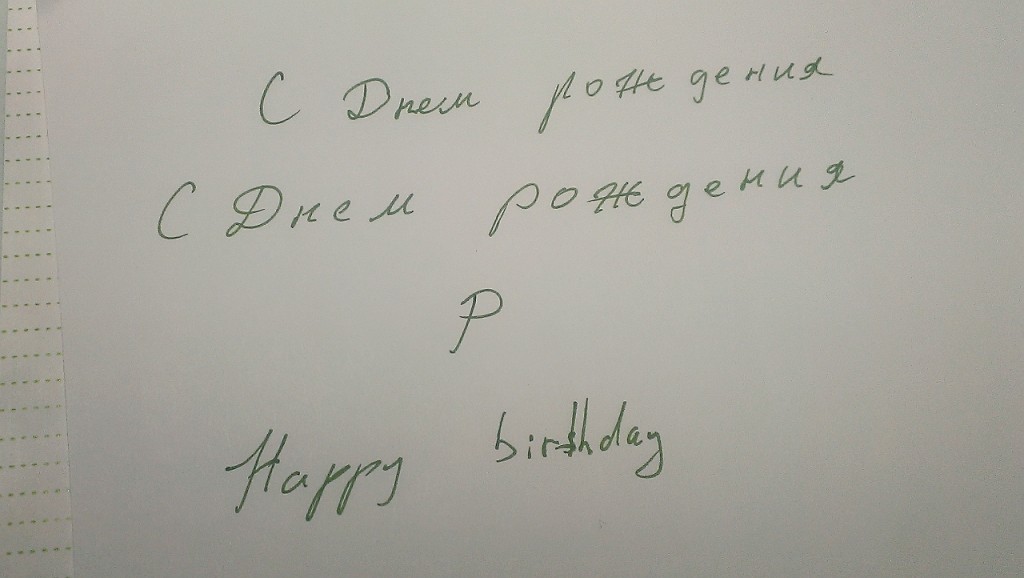 С Днем рождения
С Днем рождения
Р
Happy birthday